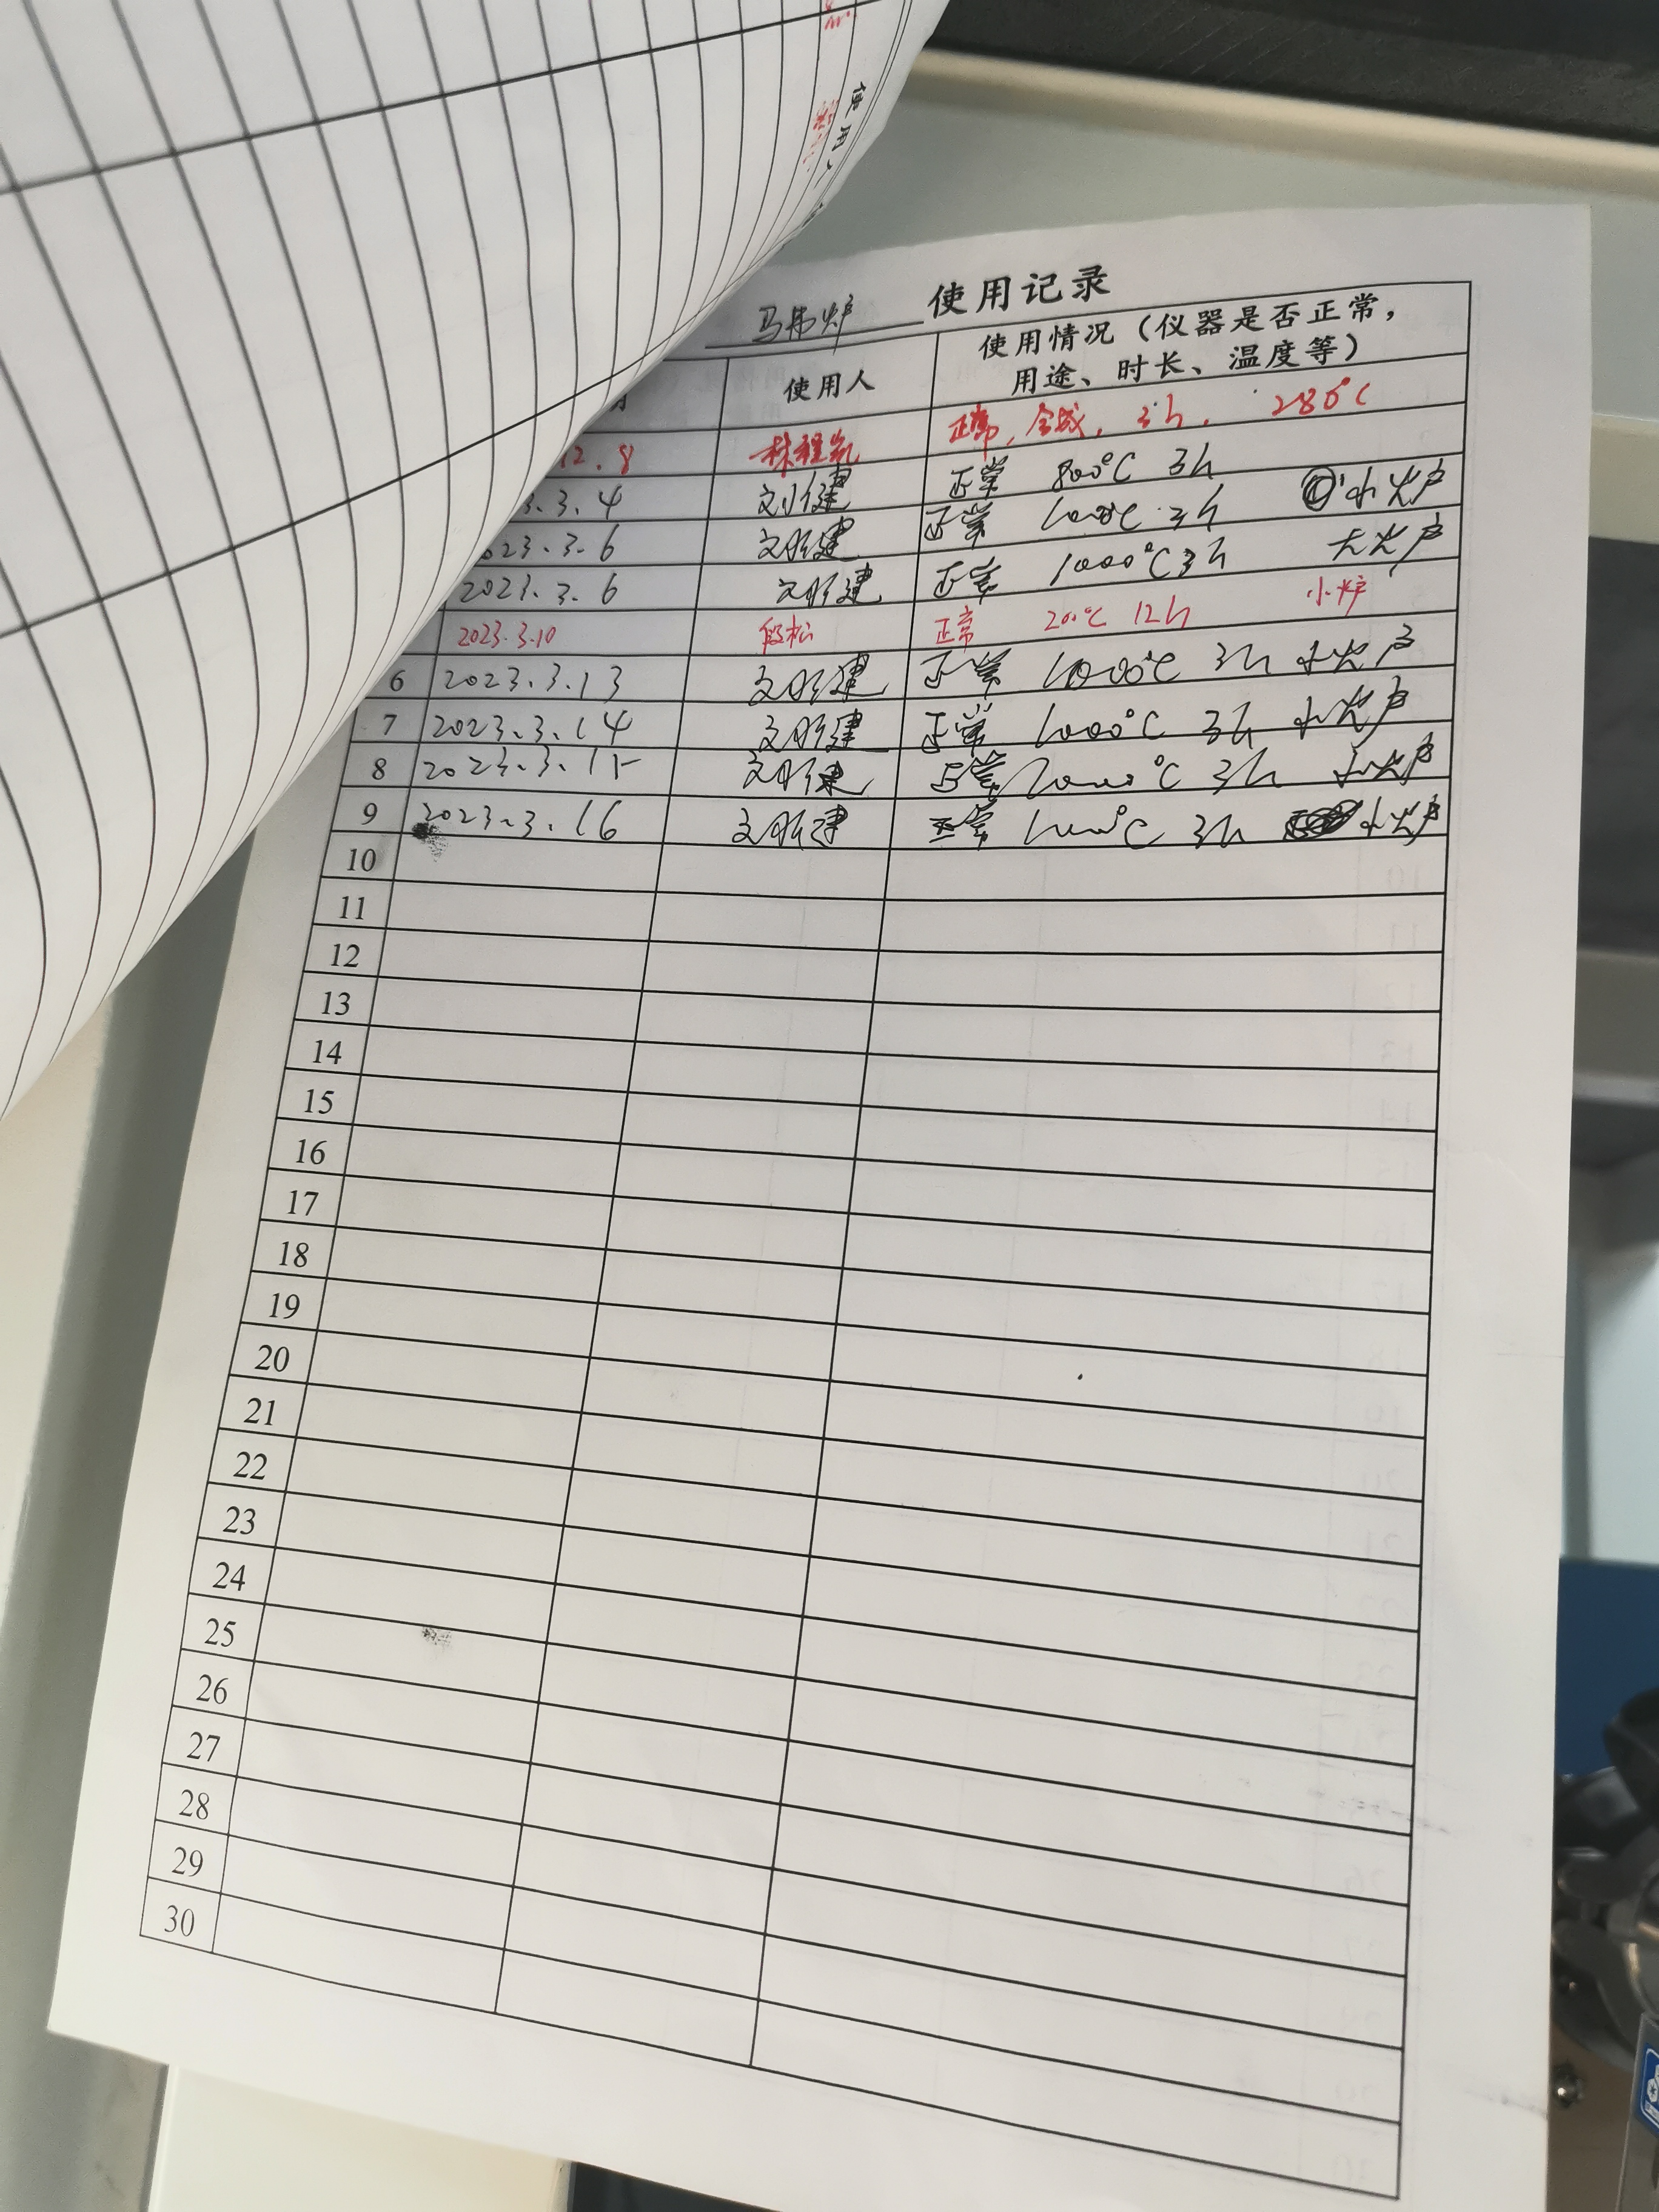 使用人
马弗炉 使用记录
使用人 使用情况(仪器是否正常,
用途、时长、温度等)
12.8 林程凯 正常,合成,3h, 280°C
3.3.4 刘建 正常 800°C 3h
023.3.6 正常 1000°C 3h 小炉
2023.3.6 正常 1000°C 3h 大炉
2023.3.10 段松 正常 200°C 12h 小炉
6 2023.3.13 正常 1000°C 3h 小炉
7 2023.3.14 正常 1000°C 3h 小炉
8 2023.3.15 正常 1000°C 3h 小炉
9 2023.3.16 正常 1000°C 3h 小炉
10
11
12
13
14
15
16
17
18
19
20
21
22
23
24
25
26
27
28
29
30